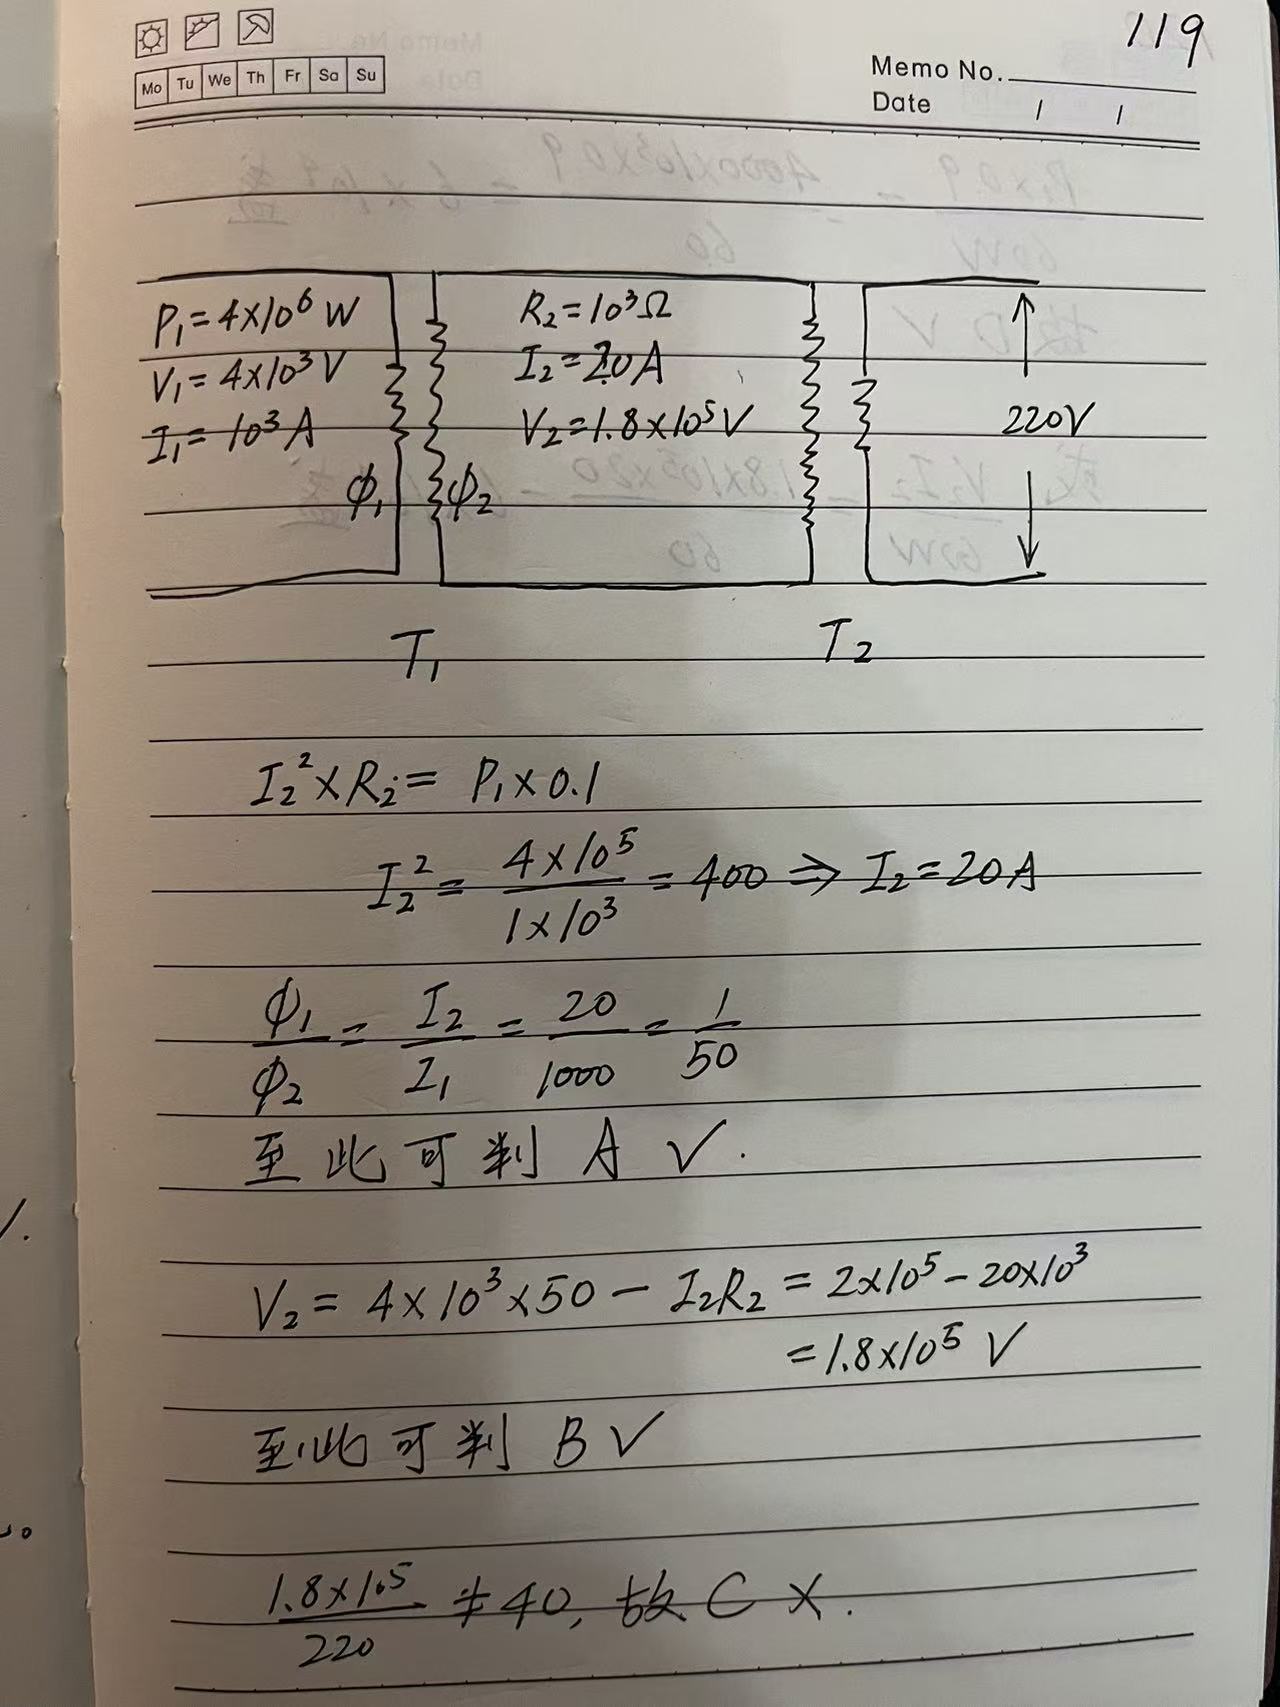 119
Mo Tu We Th Fr Sa Su
Memo No.
Date / /
P₁=4×10⁶ W
V₁=4×10³ V
I₁=10³ A
ϕ₁
ϕ₂
R₂=10³Ω
I₂=20A
V₂=1.8×10⁵V
220V
T₁
T₂
I₂²×R₂= P₁×0.1
I₂²= 4×10⁵/1×10³ =400 ⇒ I₂=20A
ϕ₁/ϕ₂ = I₂/I₁ = 20/1000 = 1/50
至此可判 A ✓.
V₂= 4×10³×50 - I₂R₂ = 2×10⁵-20×10³
=1.8×10⁵ V
至此可判 B ✓
1.8×10⁵/220 ≠40, 故 C ×.